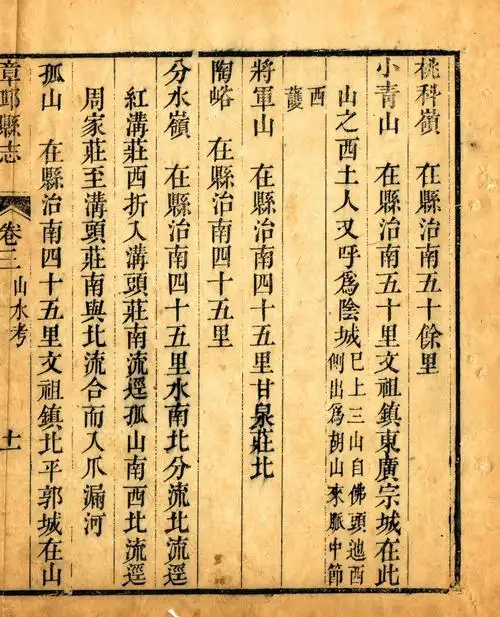 桃科嶺　在縣治南五十餘里
小青山　在縣治南五十里文祖鎮東廣宗城在此
山之西土人又呼爲陰城
已上三山自佛頭迤西
側出爲胡山來脈中節
西
護
將軍山　在縣治南四十五里甘泉莊北
陶峪　在縣治南四十五里
分水嶺　在縣治南四十五里水南北分流北流逕
紅溝莊西折入溝頭莊南流逕孤山南西北流逕
周家莊至溝頭莊南與北流合而入爪漏河
孤山　在縣治南四十五里文祖鎮北平郭城在山
章邱縣志　卷三　山水考　十一